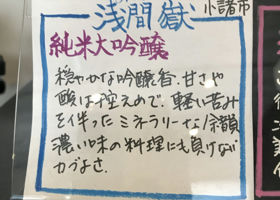 小諸市
浅間嶽
純米大吟醸
穏やかな吟醸香.甘さや
酸は控えめで、軽い苦み
を伴ったミネラリーな余韻
濃い味の料理にも負けない
力づよさ.